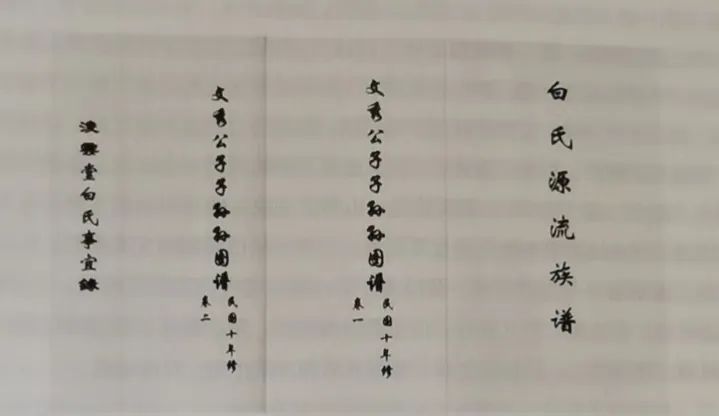 白氏源流族谱
文秀公子子孙孙图谱 民国十年修
卷一
文秀公子子孙孙图谱 民国十年修
卷二
堂白氏事宜錄